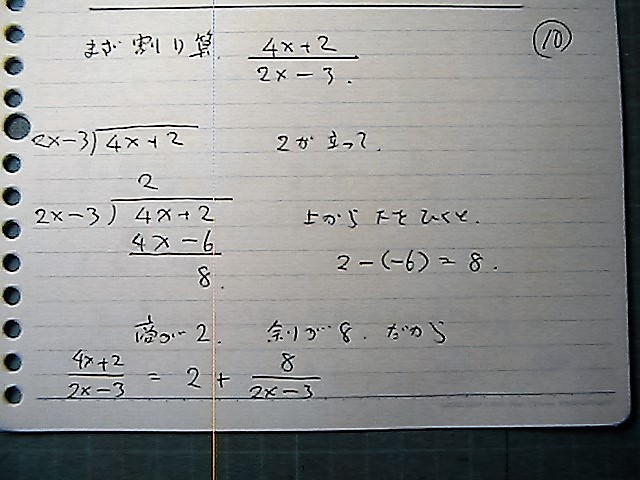 まず割り算. (4x+2)/(2x-3).
⑩
2x-3)4x+2 2が立って.
2
2x-3)4x+2 上から下をひくと.
4x-6 2-(-6)=8.
8.
商が2. 余りが8. だから
(4x+2)/(2x-3) = 2 + 8/(2x-3)